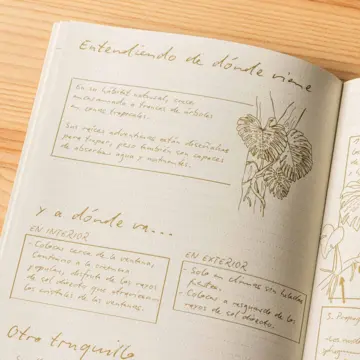 Entendiendo de dónde viene
En su hábitat natural, crece
encaramada a troncos de árboles
en zonas tropicales.
Sus raíces adventicias están diseñadas
para trepar, pero también son capaces
de absorber agua y nutrientes.
y a dónde va...
EN INTERIOR
- Colocar cerca de la ventana.
Contrario a la creencia
popular, disfruta de los rayos
de sol directo que atraviesan
los cristales de las ventanas.
EN EXTERIOR
- Solo en climas sin heladas
- Colocar a resguardo de los
rayos de sol directo.
Otro truquillo